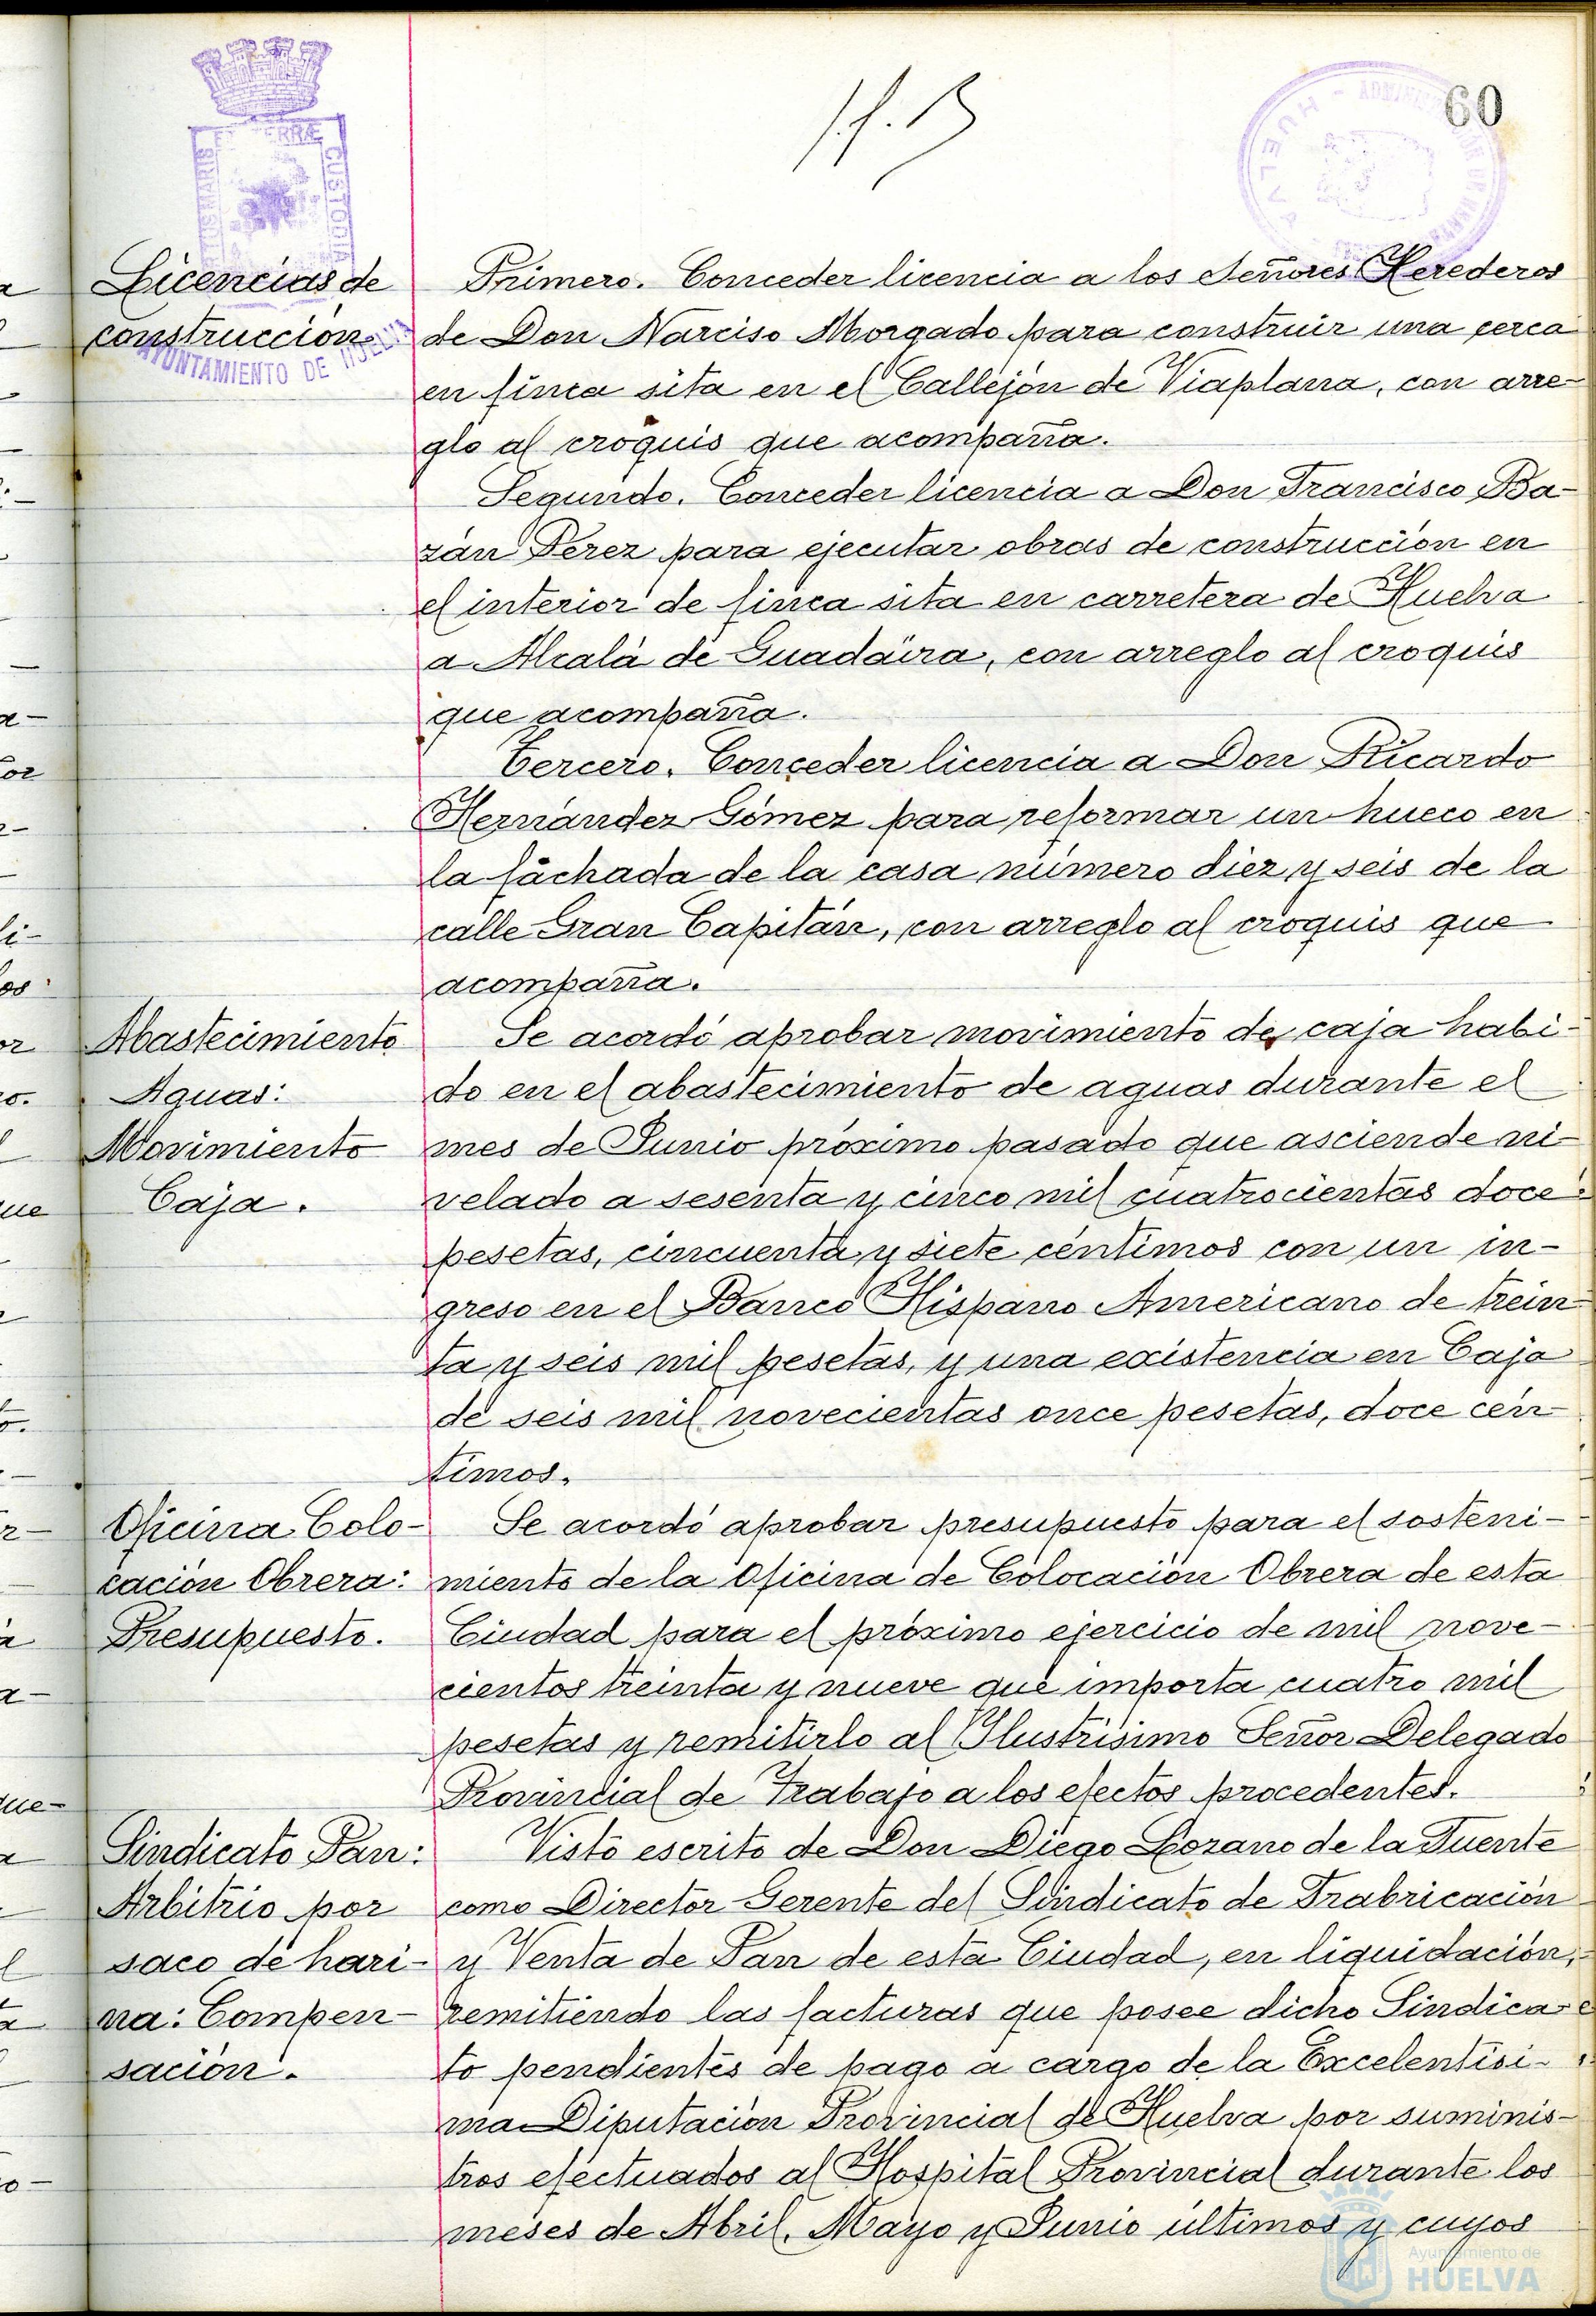 60
TERRÆ
CUSTODIA
AYUNTAMIENTO DE HUELVA
HUELVA
Licencias de
construcción.
Primero. Conceder licencia a los Señores Herederos
de Don Narciso Morgado para construir una cerca
en finca sita en el Callejón de Viaplana, con arre-
glo al croquis que acompaña.
Segundo. Conceder licencia a Don Francisco Ba-
zán Pérez para ejecutar obras de construcción en
el interior de finca sita en carretera de Huelva
a Alcalá de Guadáira, con arreglo al croquis
que acompaña.
Tercero. Conceder licencia a Don Ricardo
Hernández Gómez para reformar un hueco en
la fachada de la casa número diez y seis de la
calle Gran Capitán, con arreglo al croquis que
acompaña.
Abastecimiento
Aguas:
Movimiento
Caja.
Se acordó aprobar movimiento de caja habi-
do en el abastecimiento de aguas durante el
mes de Junio próximo pasado que asciende ni-
velado a sesenta y cinco mil cuatrocientas doce
pesetas, cincuenta y siete céntimos con un in-
greso en el Banco Hispano Americano de trein-
ta y seis mil pesetas, y una existencia en Caja
de seis mil novecientas once pesetas, doce cén-
timos.
Oficina Colo-
cación Obrera:
Presupuesto.
Se acordó aprobar presupuesto para el sosteni-
miento de la Oficina de Colocación Obrera de esta
Ciudad para el próximo ejercicio de mil nove-
cientos treinta y nueve que importa cuatro mil
pesetas y remitirlo al Ilustrísimo Señor Delegado
Provincial de Trabajo a los efectos procedentes.
Sindicato Pan:
Arbitrio por
saco de hari-
na: Compen-
sación.
Visto escrito de Don Diego Lozano de la Fuente
como Director Gerente del Sindicato de Frabricación
y Venta de Pan de esta Ciudad, en liquidación,
remitiendo las facturas que posee dicho Sindica-
to pendientes de pago a cargo de la Excelentísi-
ma Diputación Provincial de Huelva por suminis-
tros efectuados al Hospital Provincial durante los
meses de Abril, Mayo y Junio últimos y cuyos
Ayuntamiento de
HUELVA